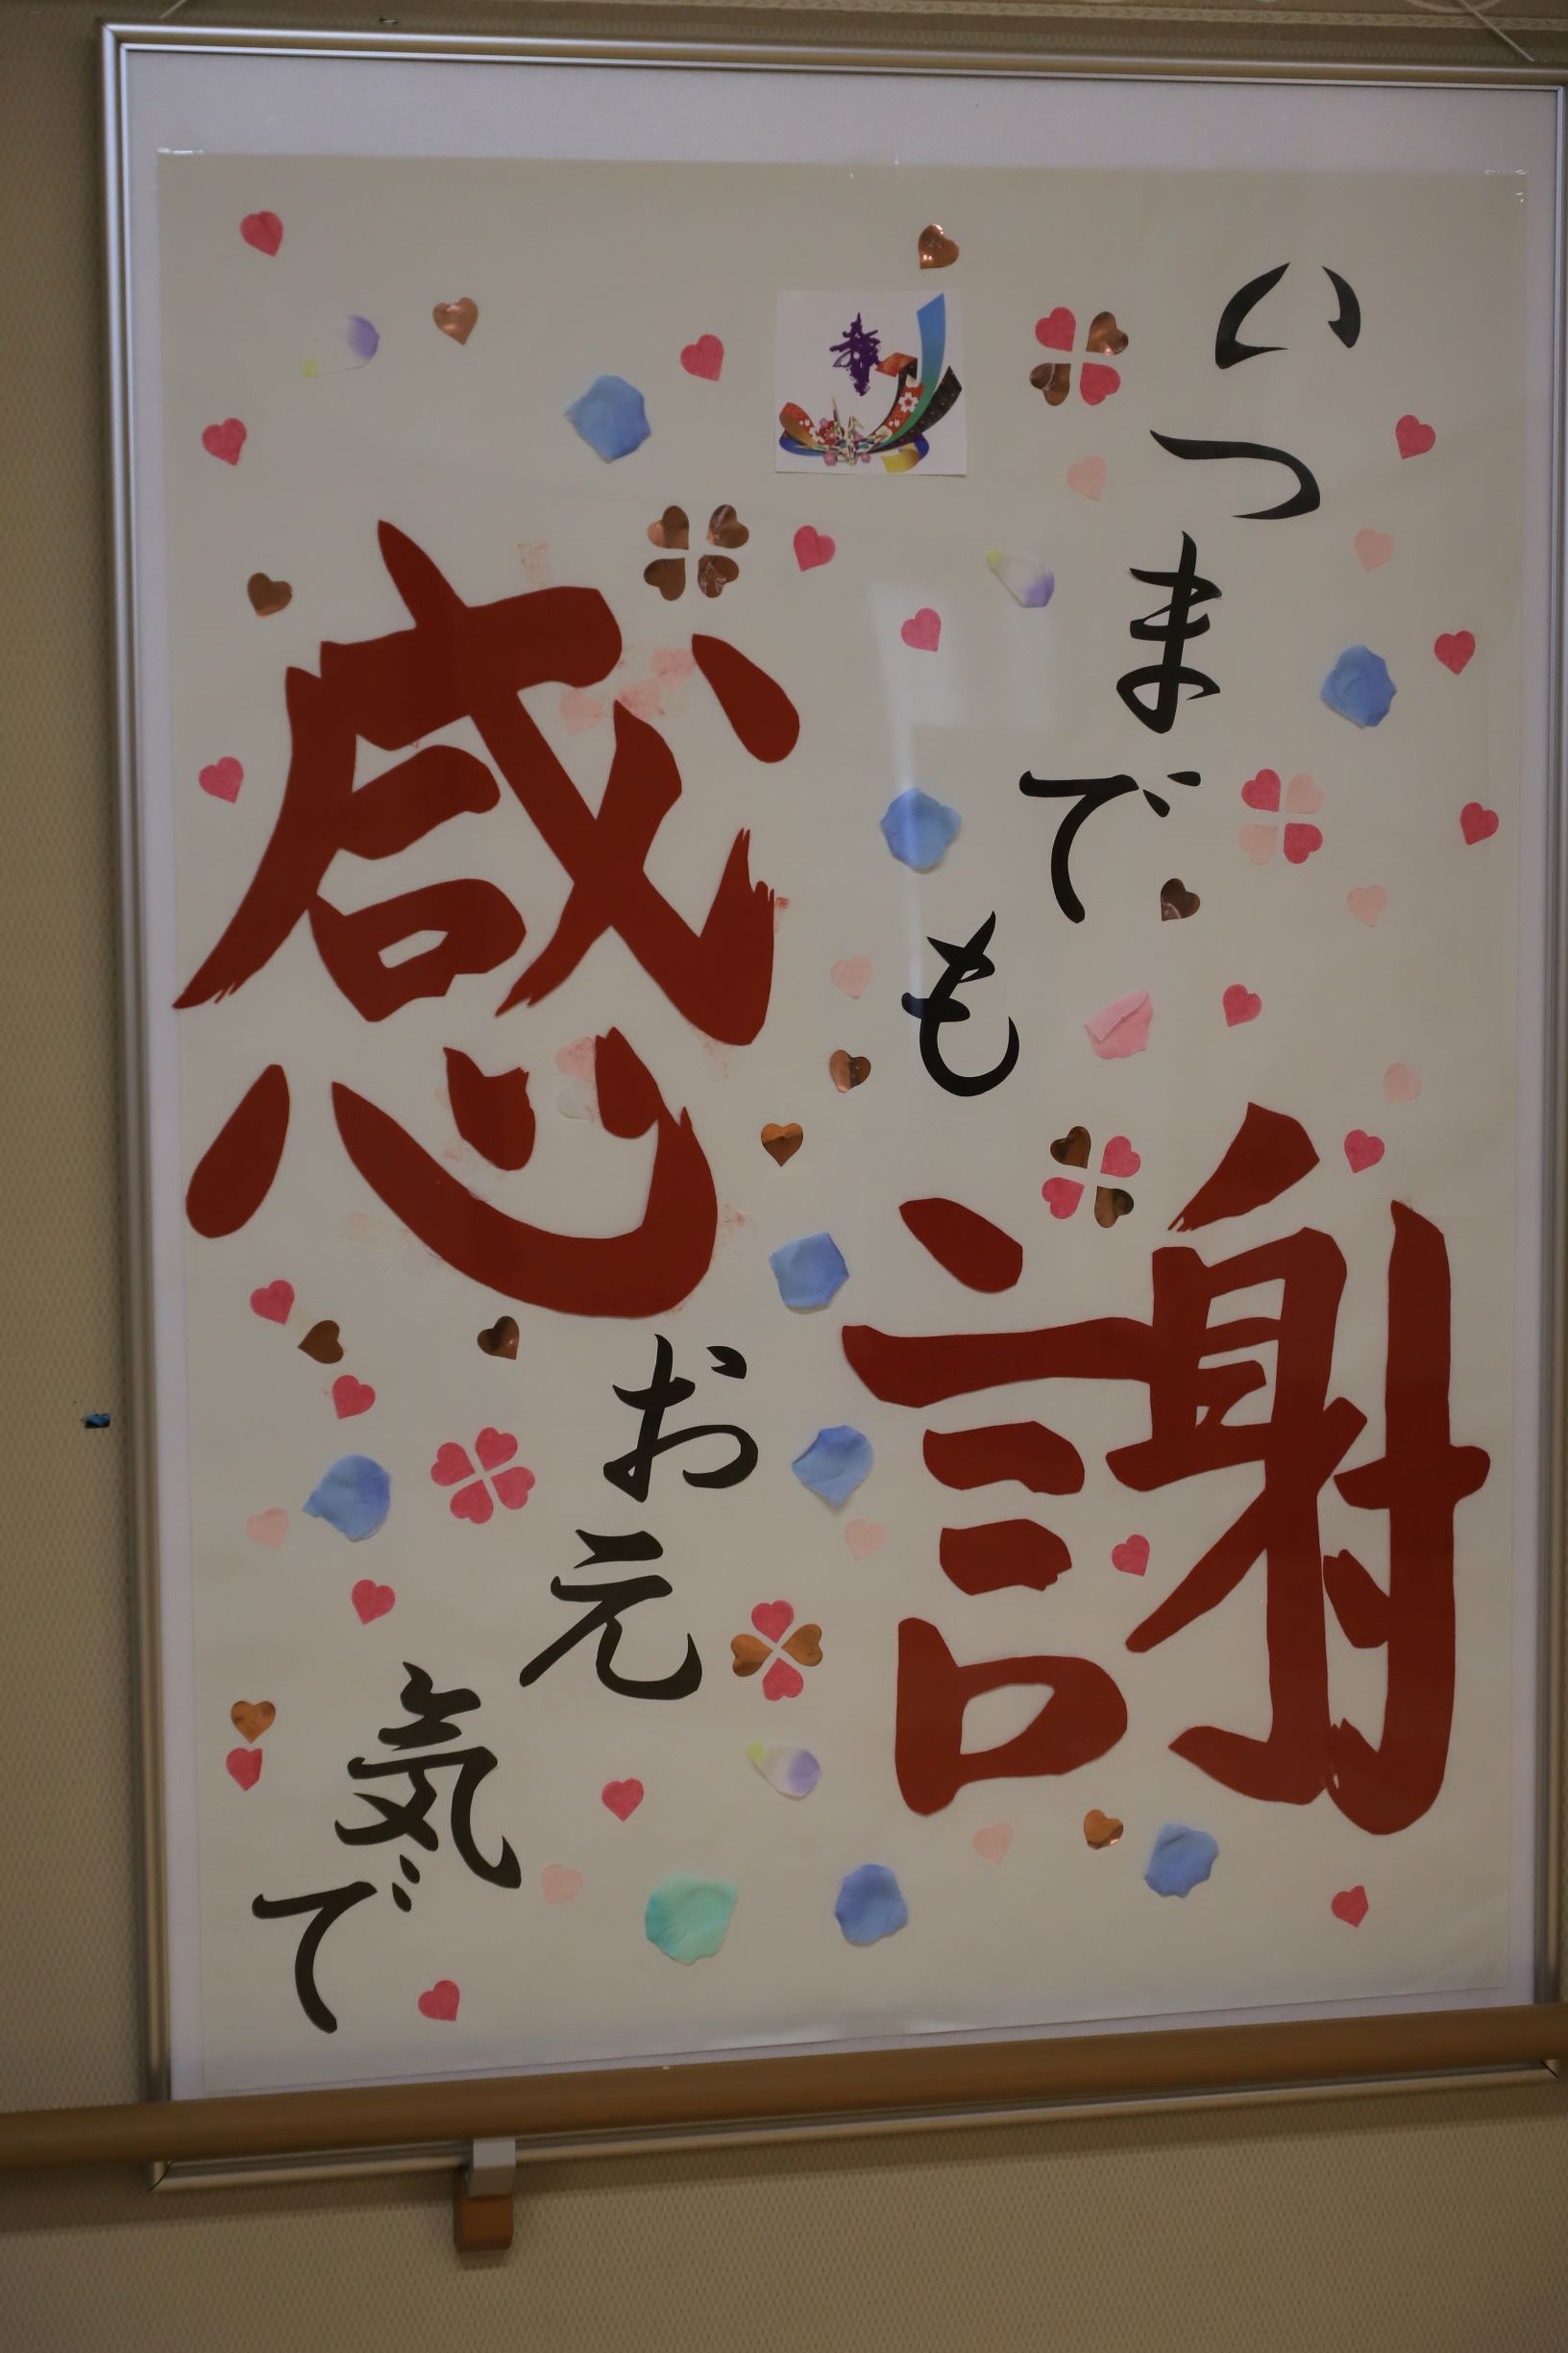 いつまでも
感謝
お元気で